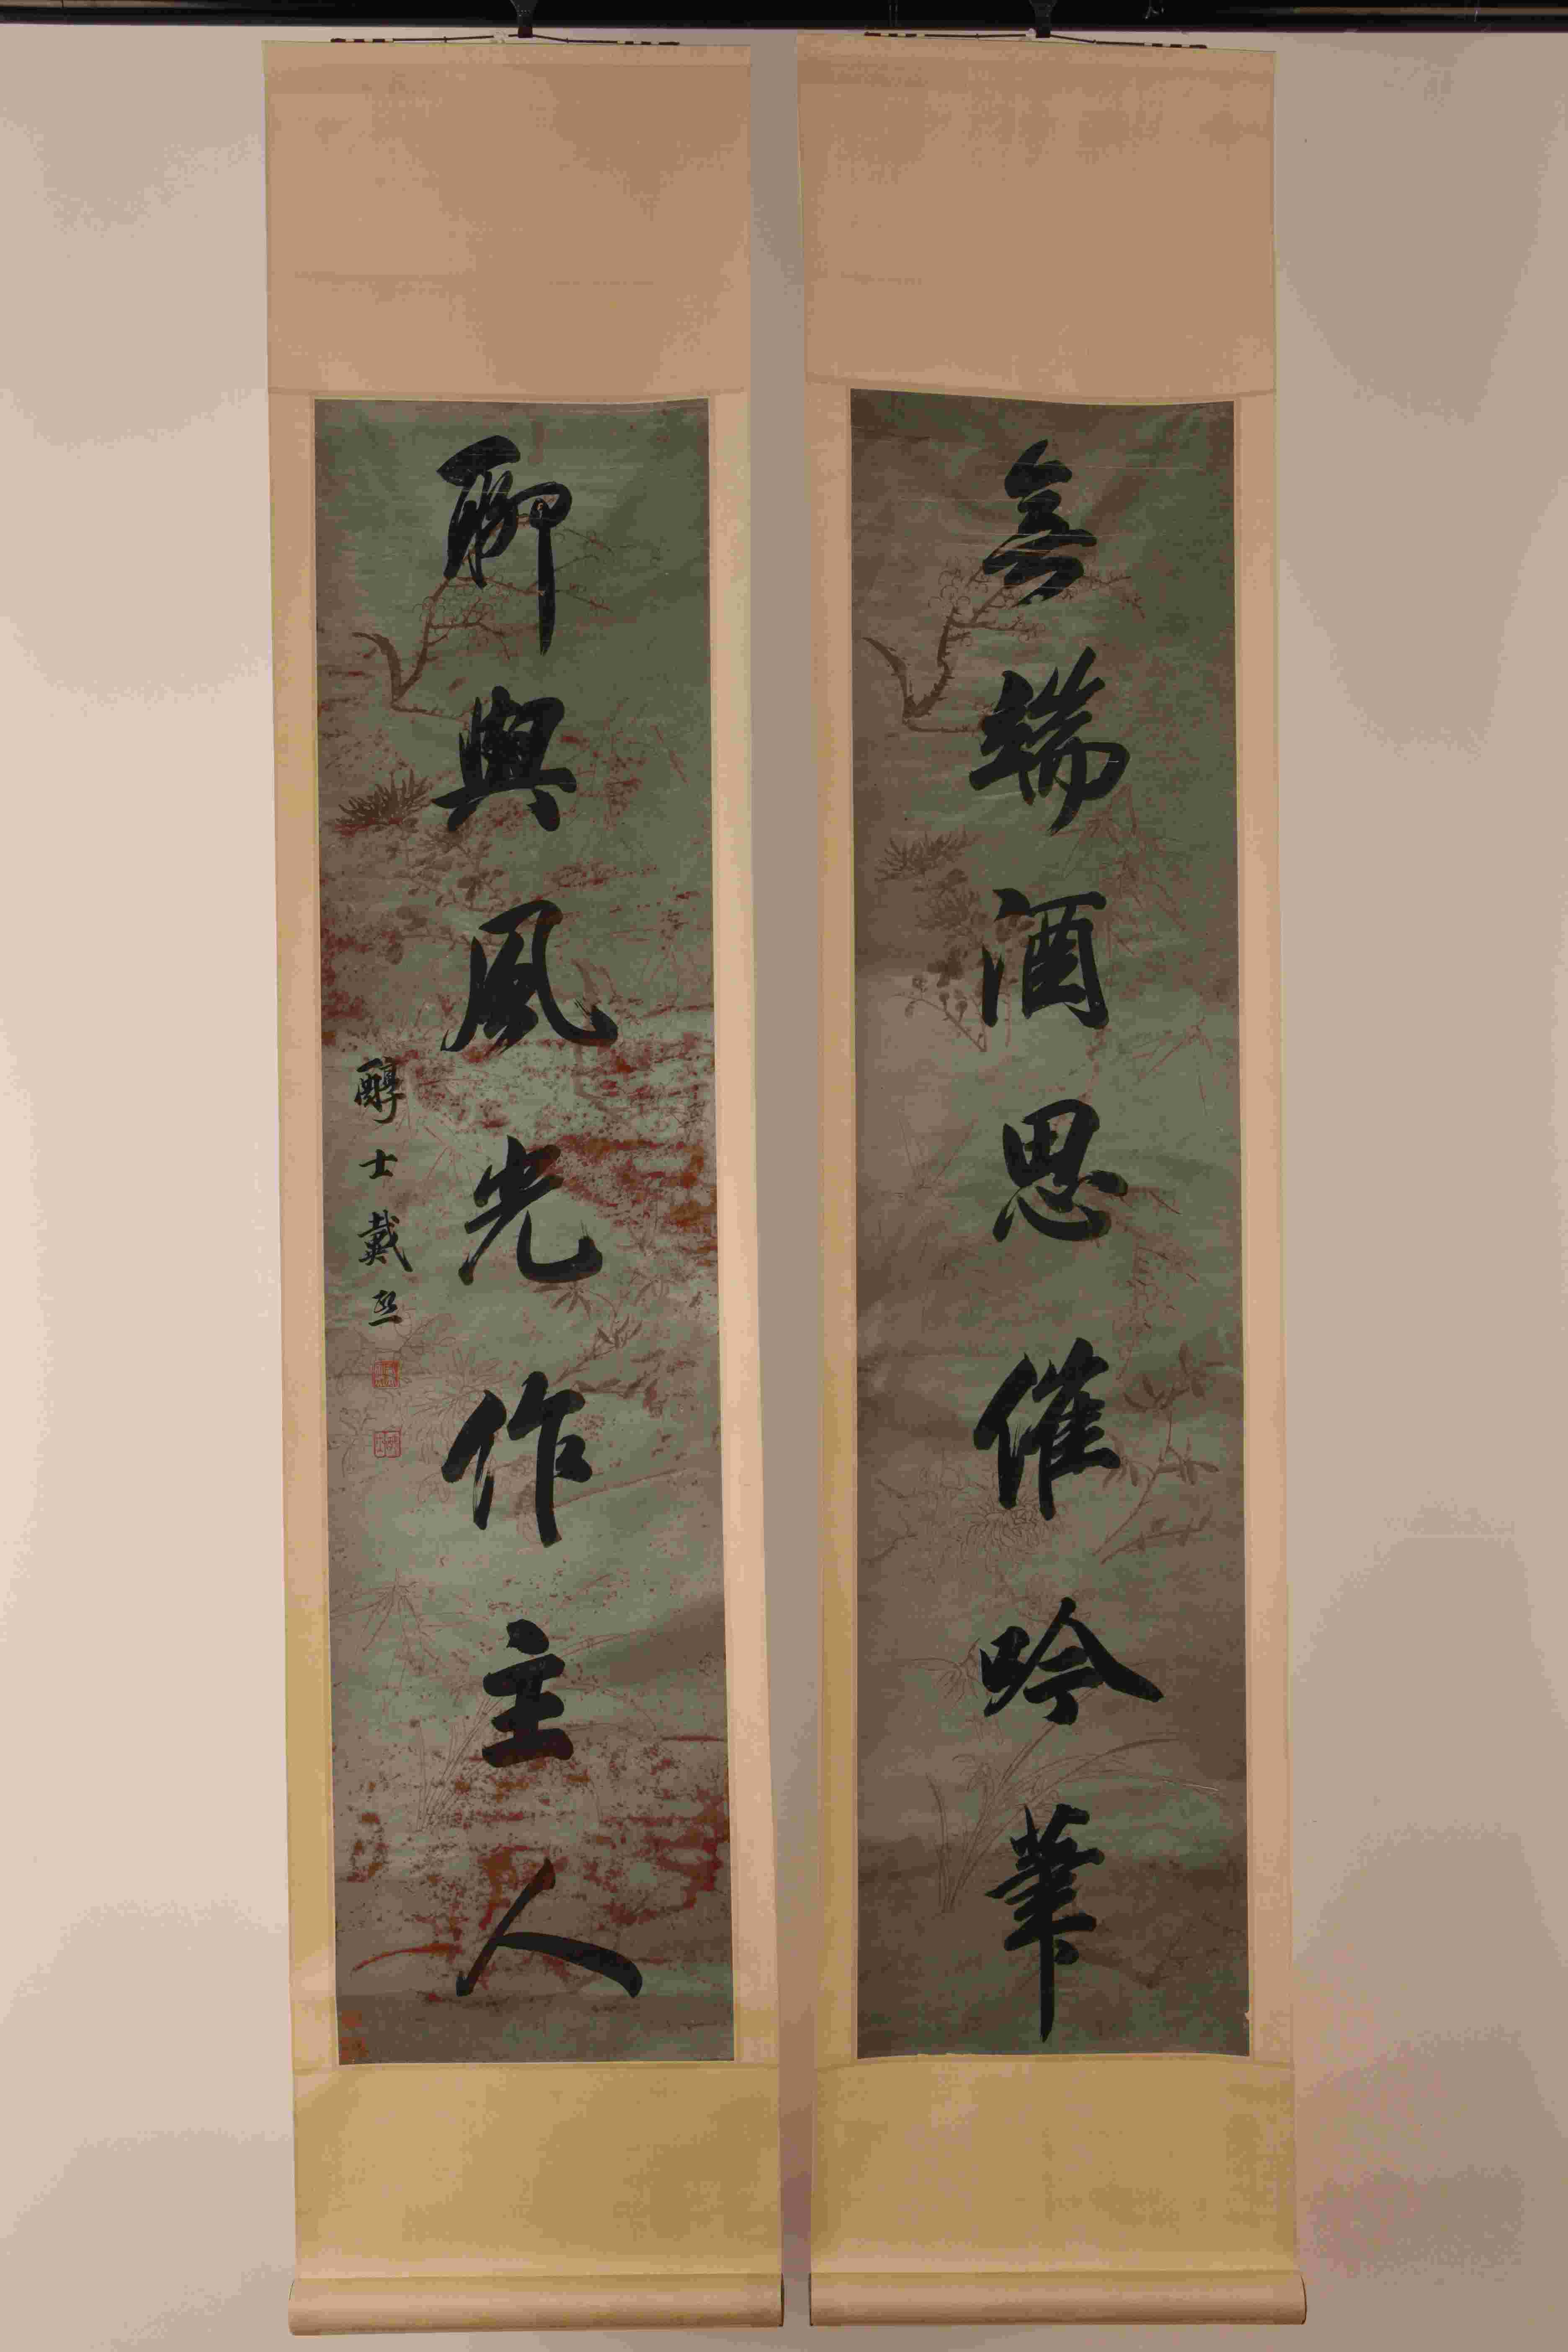 無端酒思催吟筆
聊與風光作主人
醇士戴熙